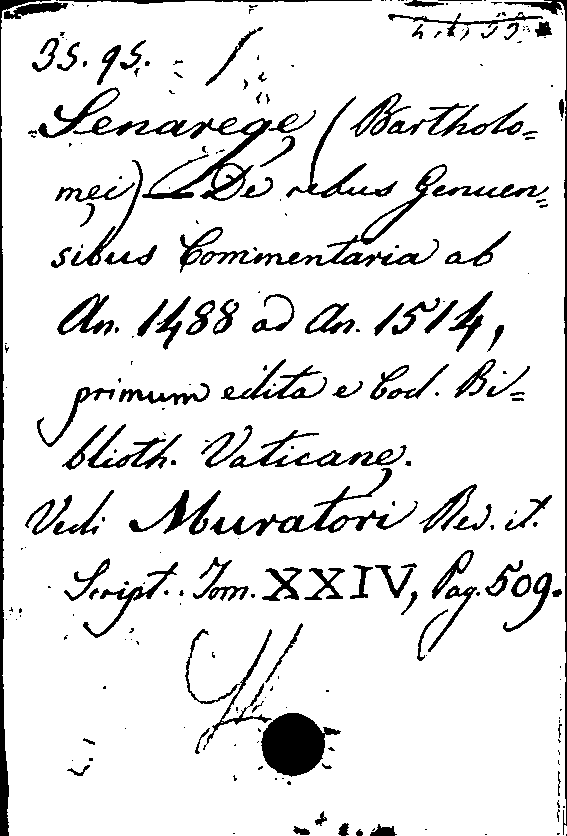 35. 95.
Senaregę (Bartholo=
męi) — De rebus Genuen=
sibus Commentaria ab
An. 1488 ad An. 1514,
primum edita e Cod. Bi=
blioth. Vaticanę.
Vedi Muratori Rer. it.
Script. Tom. XXIV, Pag. 509.